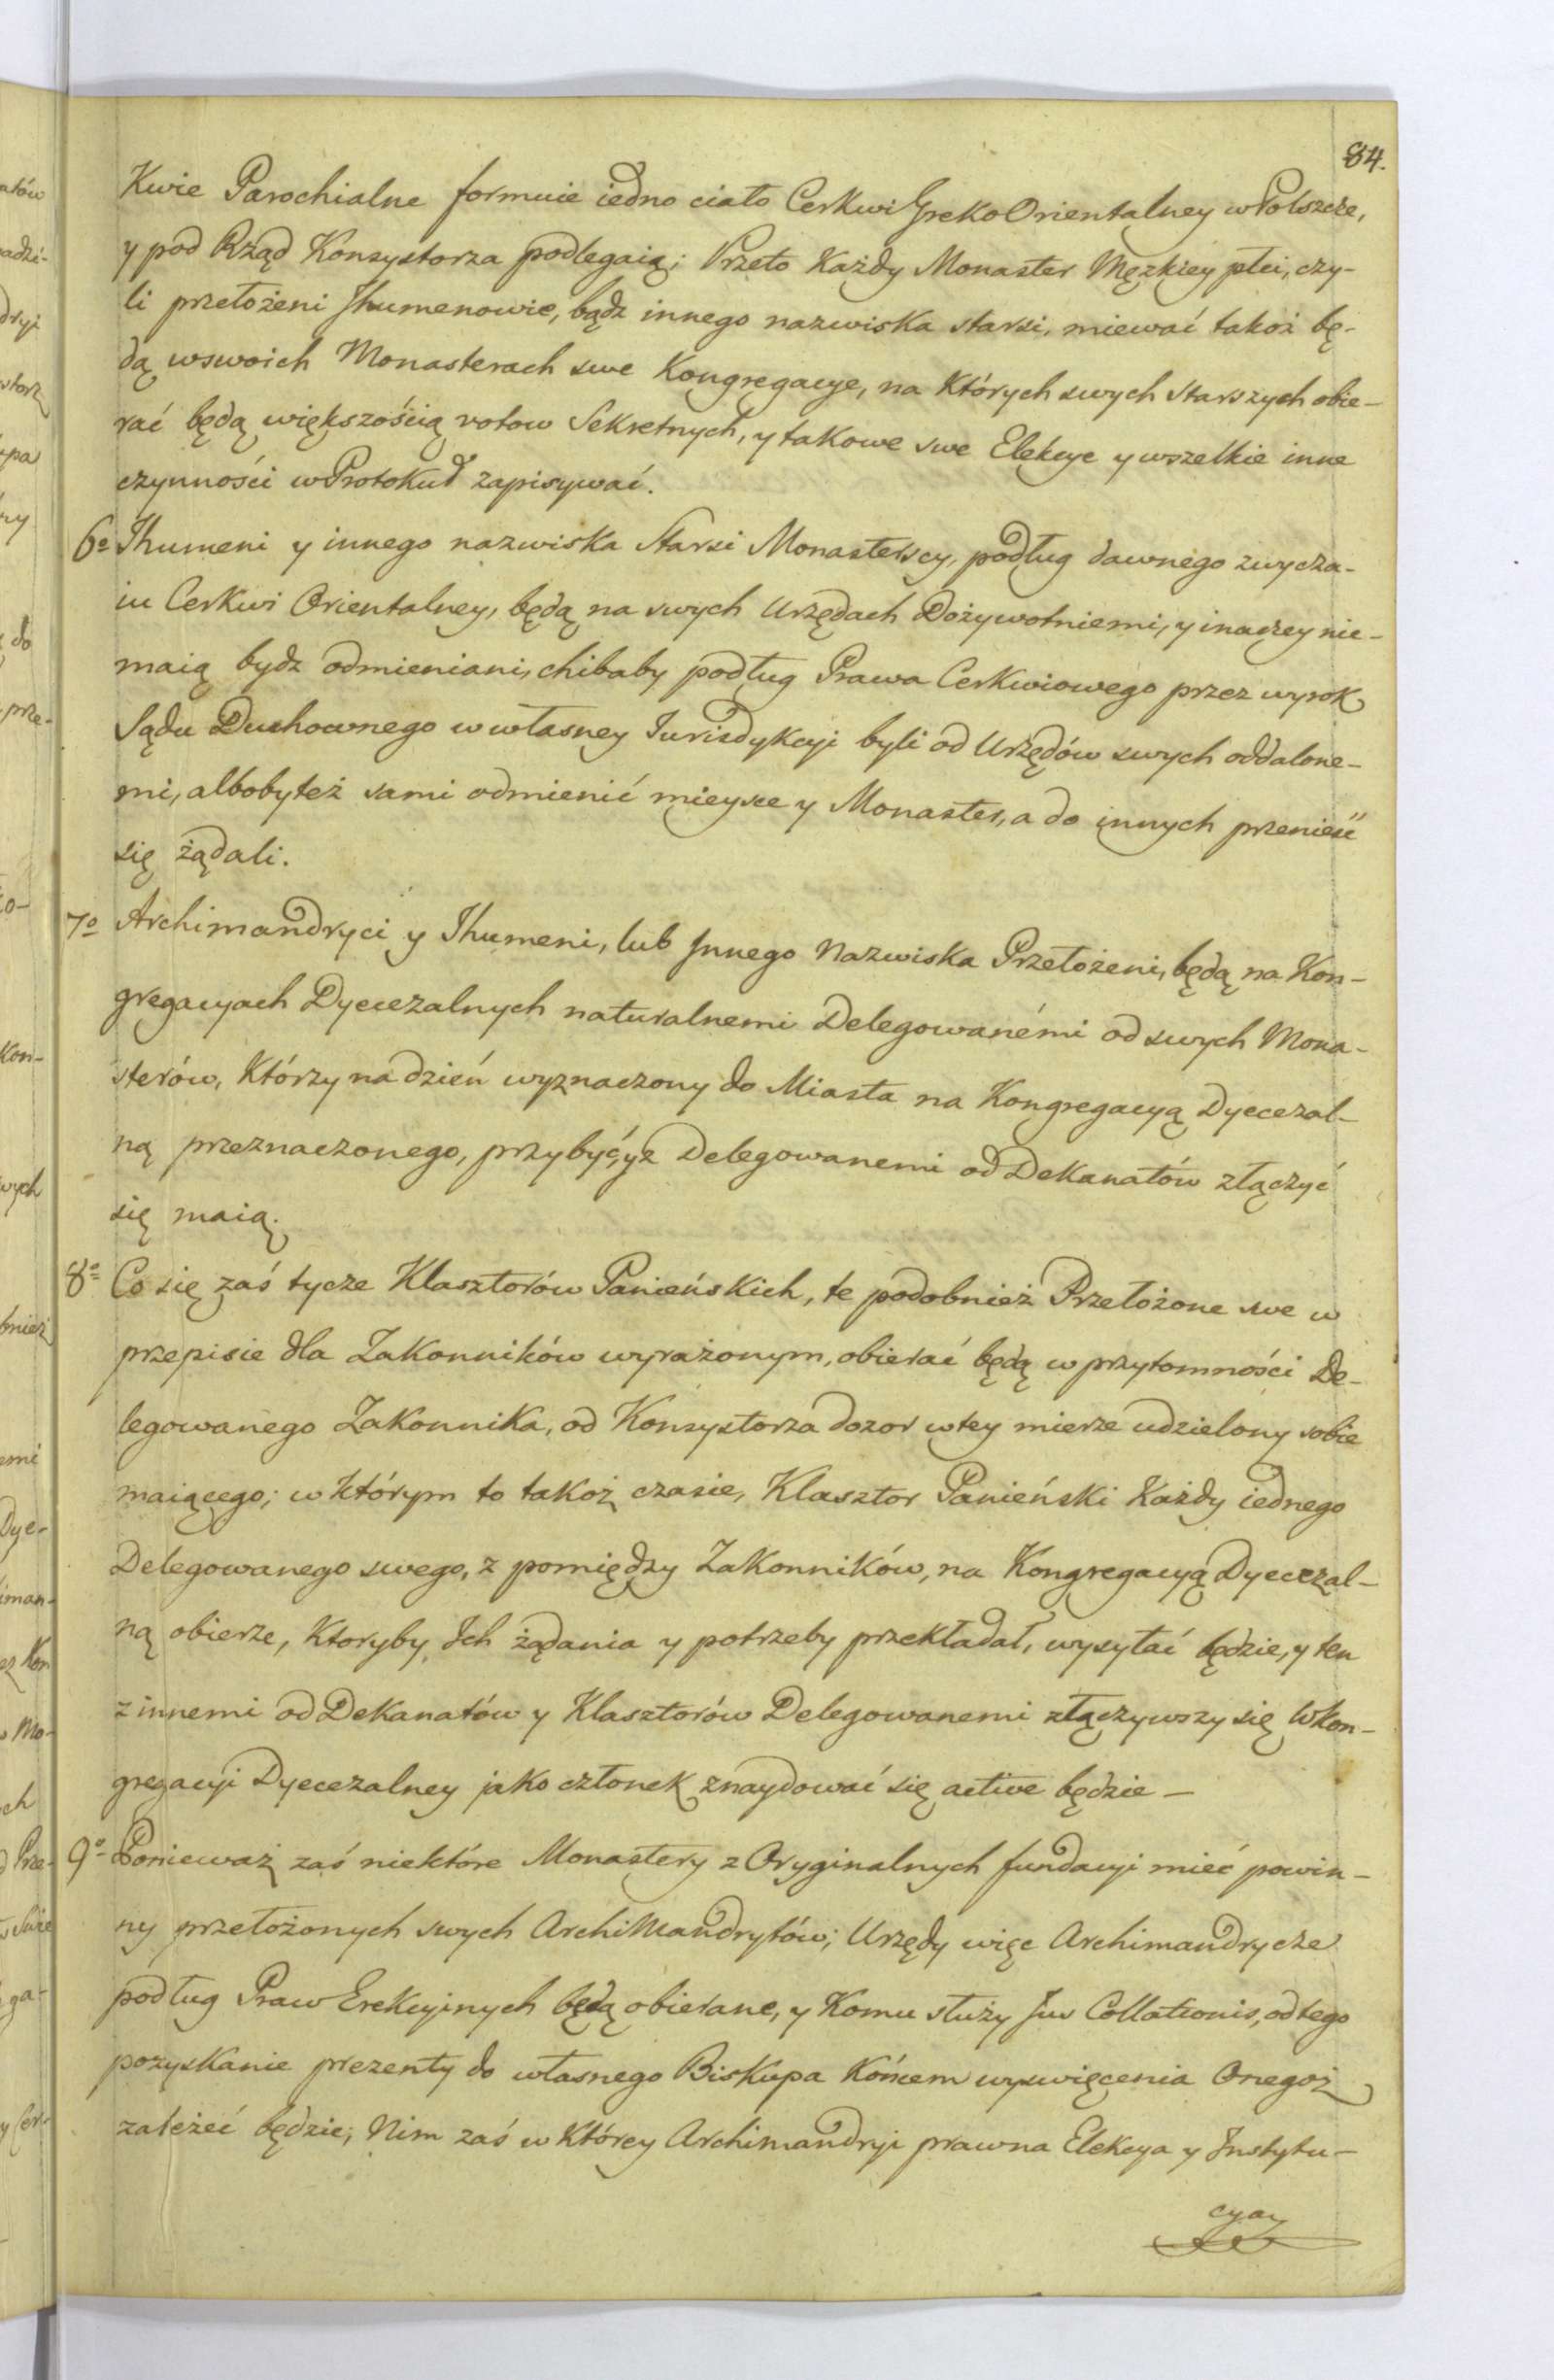 84.
Kwie Parochialne formuie iedno ciało Cerkwi Greko Orientalney w Polszcze,
y pod Rząd Konsystorza podlegaią; Przeto Każdy Monaster Męzkiey płci, czy-
li przełożeni Jhumenowie, bądz innego nazwiska starsi, miewać takoż bę-
dą w swoich Monasterach swe Kongregacye, na Których swych Starszych obie-
rać będą większośćią votow Sekretnych, y takowe swe Elekcye y wszelkie inne
czynności w Protokuł zapisywać.
6o Jhumeni y innego nazwiska Starsi Monasterscy, podług dawnego zwycza-
iu Cerkwi Orientalney, będą na swych Urzędach Dożywotniemi, y inaczey nie-
maią bydz odmieniani, chibaby podług Prawa Cerkwiowego przez wyrok
Sądu Duchownego w własney Jurisdykcyi byli od Urzędów swych oddalone-
mi, albobyteż sami odmienić mieysce y Monaster, a do innych przenieść
się żądali.
7o Archimandryci y Jhumeni, lub Jnnego Nazwiska Przełożeni, będą na Kon-
gregacyach Dyecezalnych naturalnemi Delegowanémi od swych Mona-
sterów, Którzy na dzień wyznaczony do Miasta na Kongregacyą Dyecezal-
ną przeznaczonego, przybyć, y z Delegowanemi od Dekanatów złączyć
się maią.
8o Co się zaś tycze Klasztorów Panieńskich, te podobnież Przełożone swe w
przepisie dla Zakonników wyrażonym, obierać będą w przytomności De-
legowanego Zakonnika, od Konsystorza dozor w tey mierze udzielony sobie
maiącego; w którym to takoż czasie, Klasztor Panieński Każdy iednego
Delegowanego swego, z pomiędzy Zakonników, na Kongregacyą Dyecezal-
ną obierze, Ktoryby Jch żądania y potrzeby przekładał, wysyłać będzie, y ten
z innemi od Dekanatów y Klasztorów Delegowanemi złączywszy się w Kon-
gregacyi Dyecezalney jako członek znaydować się active będzie —
9o Ponieważ zaś niektóre Monastery z Oryginalnych fundacyi mieć powin-
ny przełożonych swych Archimandrytów; Urzędy więc Archimandrycze
podług Praw Erekcyinych będą obierane, y Komu służy Jus Collationis, od tego
pozyskanie prezenty do własnego Biskupa Końcem wyswięcenia Onegoż
zależeć będzie; Nim zaś w Którey Archimandryi prawna Elekcya y Jnstytu-
cya